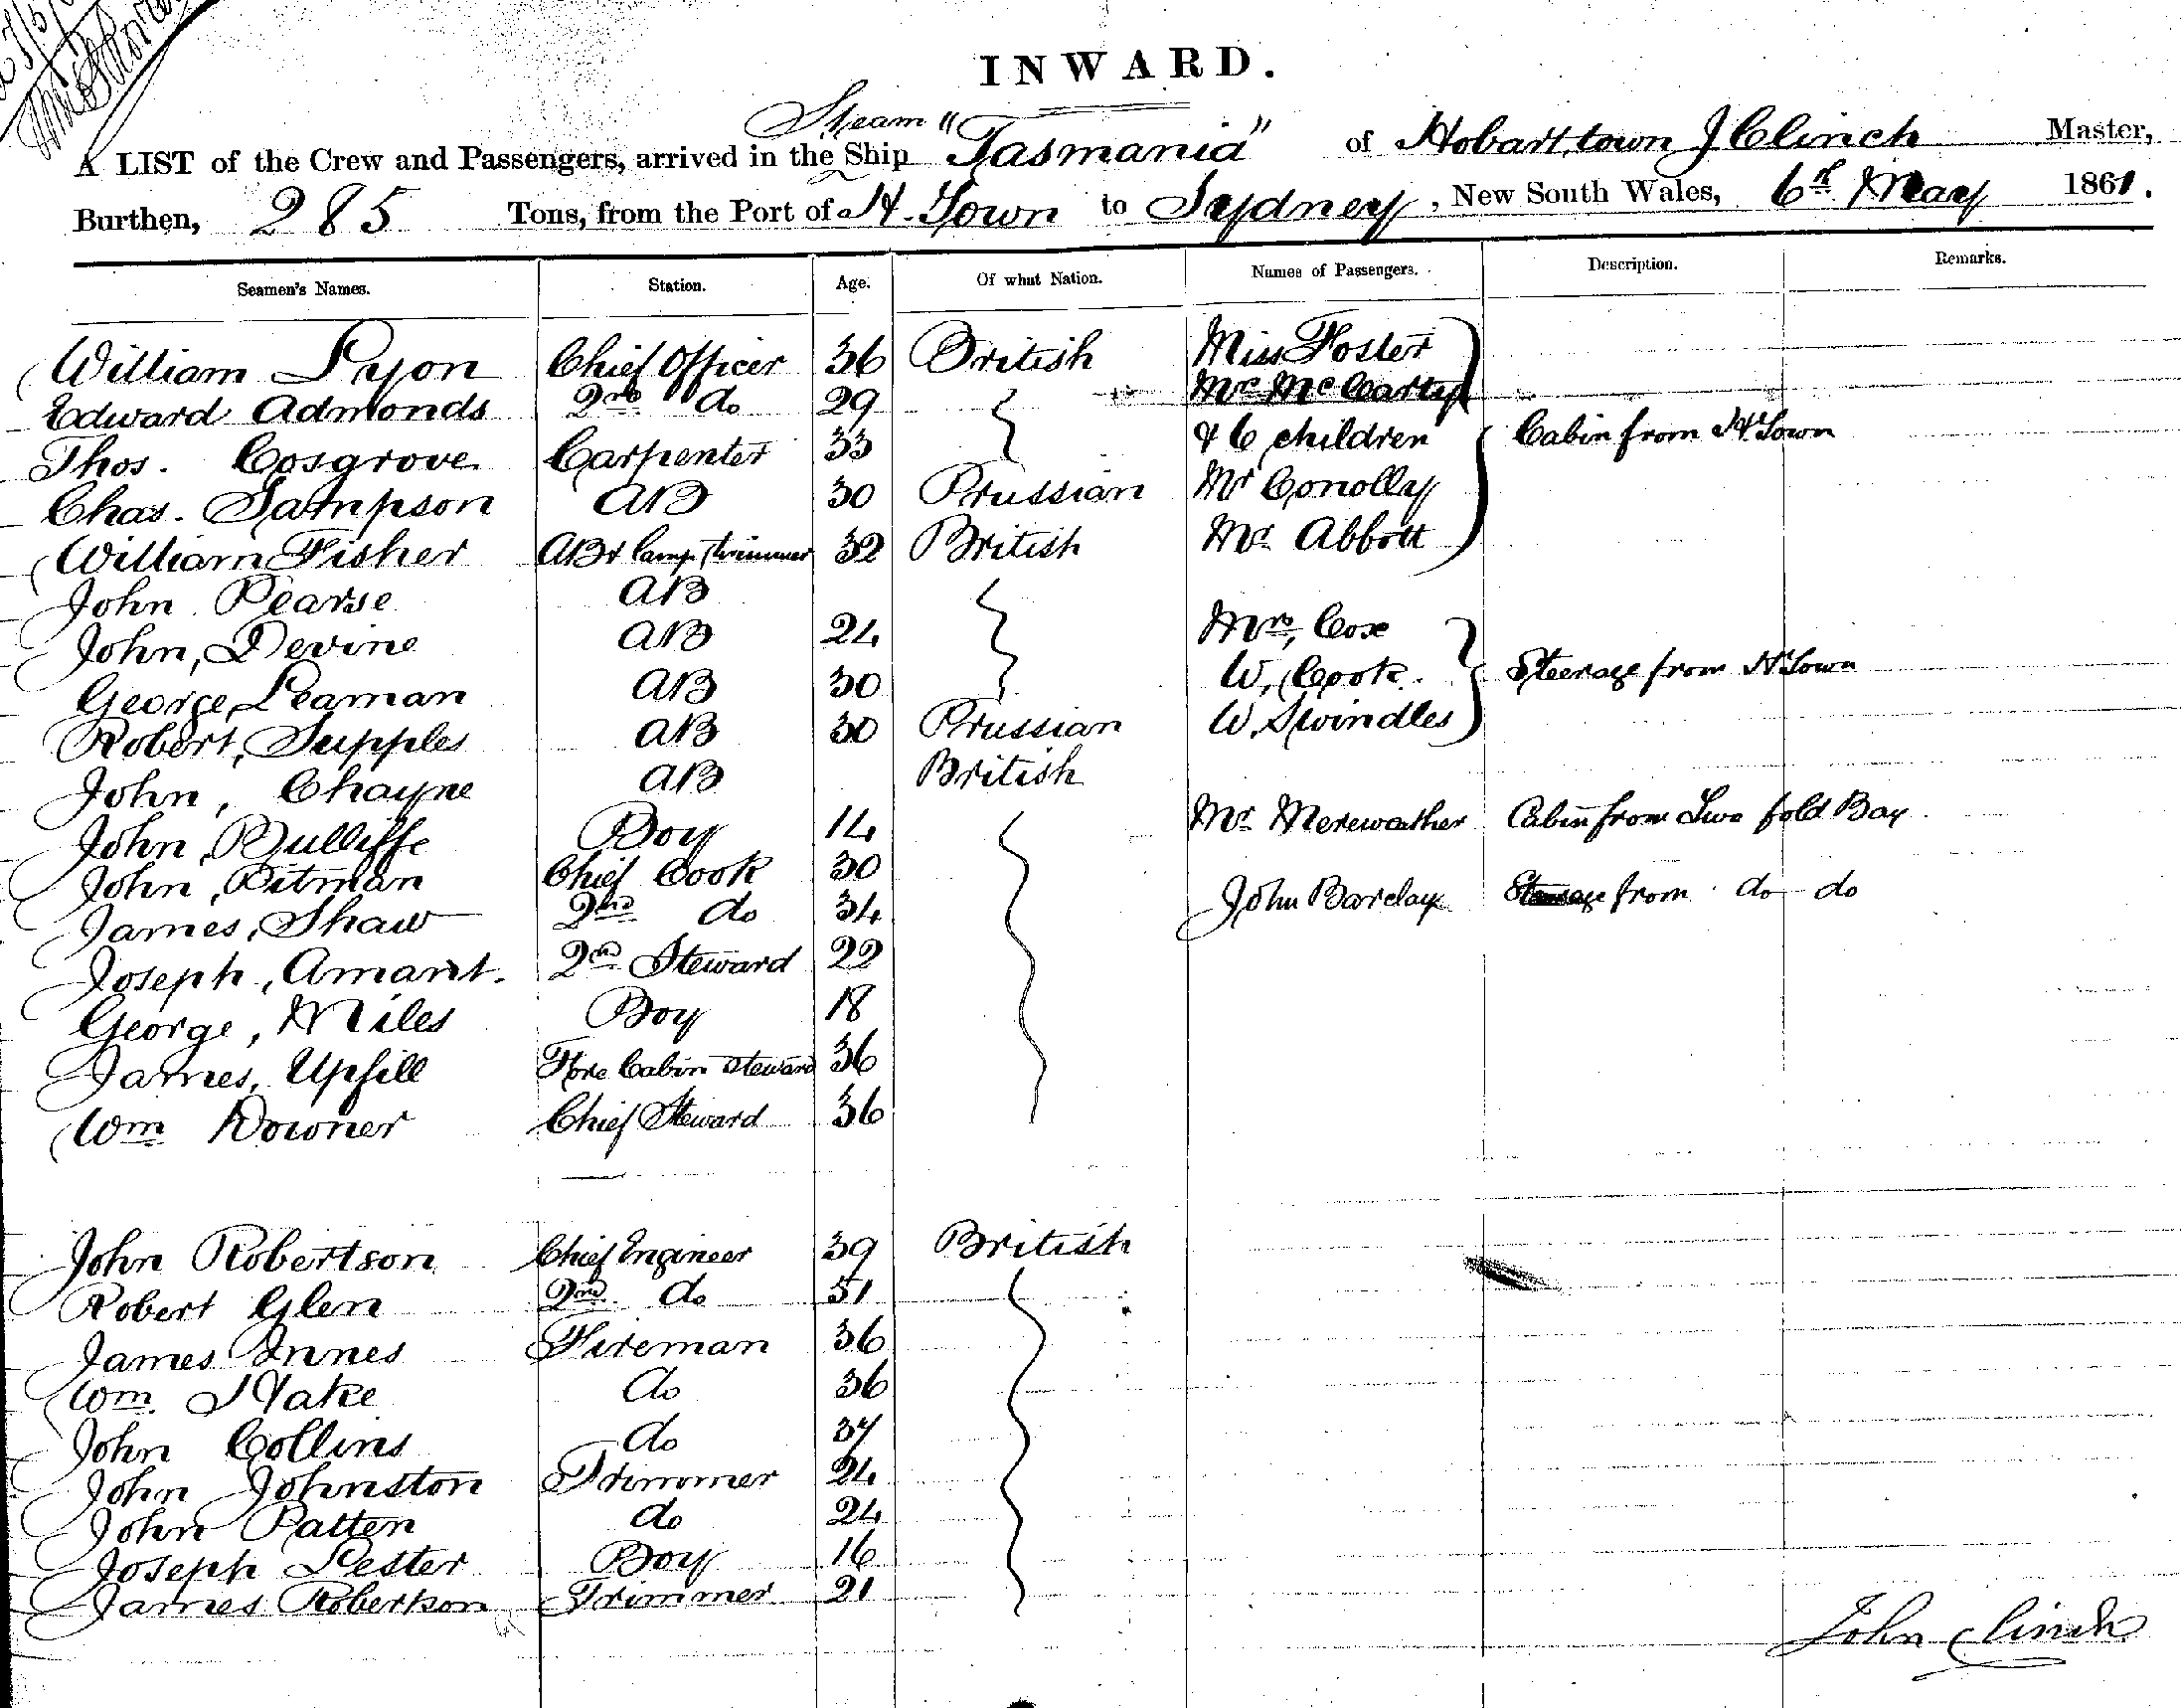 INWARD.
Steam
A LIST of the Crew and Passengers, arrived in the Ship "Tasmania" of Hobart town J Clinch Master,
Burthen, 285 Tons, from the Port of H. Town to Sydney, New South Wales, 6th May 1861.
Seamen's Names. Station. Age. Of what Nation. Names of Passengers. Description. Remarks.
William Lyon Chief Officer 36 British Miss Foster
Edward Admonds 2nd do 29 Mr McCarty
Thos. Cosgrove Carpenter 33 & 6 children Cabin from H Town
Chas. Sampson AB 30 Prussian Mr Conolly
William Fisher AB & lamp trimmer 32 British Mr Abbott
John Pearse AB
John, Devine AB 24 Mrs, Cox
George, Leaman AB 30 W, Cook. Steerage from H Town
Robert, Supples AB 30 Prussian W. Swindles
John, Chayne AB British
John, Bulliffe Boy 14 Mr Merewather Cabin from Two fold Bay
John, Pitman Chief Cook 30
James, Shaw 2nd do 34 John Barclay Steerage from do do
Joseph, Amant. 2nd Steward 22
George, Miles Boy 18
James, Upfill Fore Cabin Steward 36
Wm Downer Chief Steward 36
John Robertson Chief Engineer 39 British
Robert Glen 2nd do 51
James Innes Fireman 36
Wm. Hake do 36
John Collins do 37
John Johnston Trimmer 24
John Patten do 24
Joseph Lester Boy 16
James Robertson Trimmer 21
John Clinch